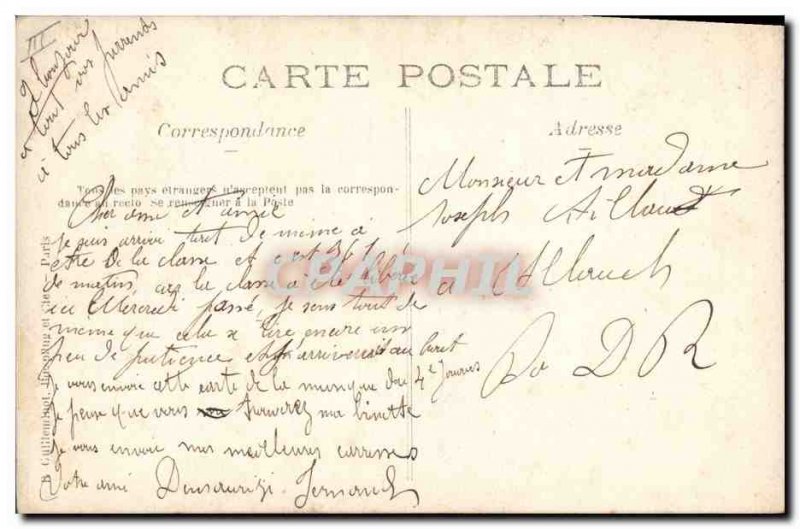 III
et bonjour
a tout vos parrends
a tous les amis
CARTE POSTALE
Correspondance
Adresse
Tous les pays étrangers n'acceptent pas la correspon-
dance au recto Se renseigner à la Poste
Cher ami et amie
je suis arrivé tout de meme a
etre de la classe et c'est
de matins, car la classe a été
ici Mercredi passé, je sens tout de
meme que cela se tire encore un
peu de patience et j'arriverais au buret
je vous envoie cette carte de la musique du 4e
je pense que vous trouverez ma binette
je vous envoie mes meilleures caresses
Votre ami Fernand
Monsieur et madame
Joseph Aillaud
a Allauch
B D R
CPAPHIL
Paris